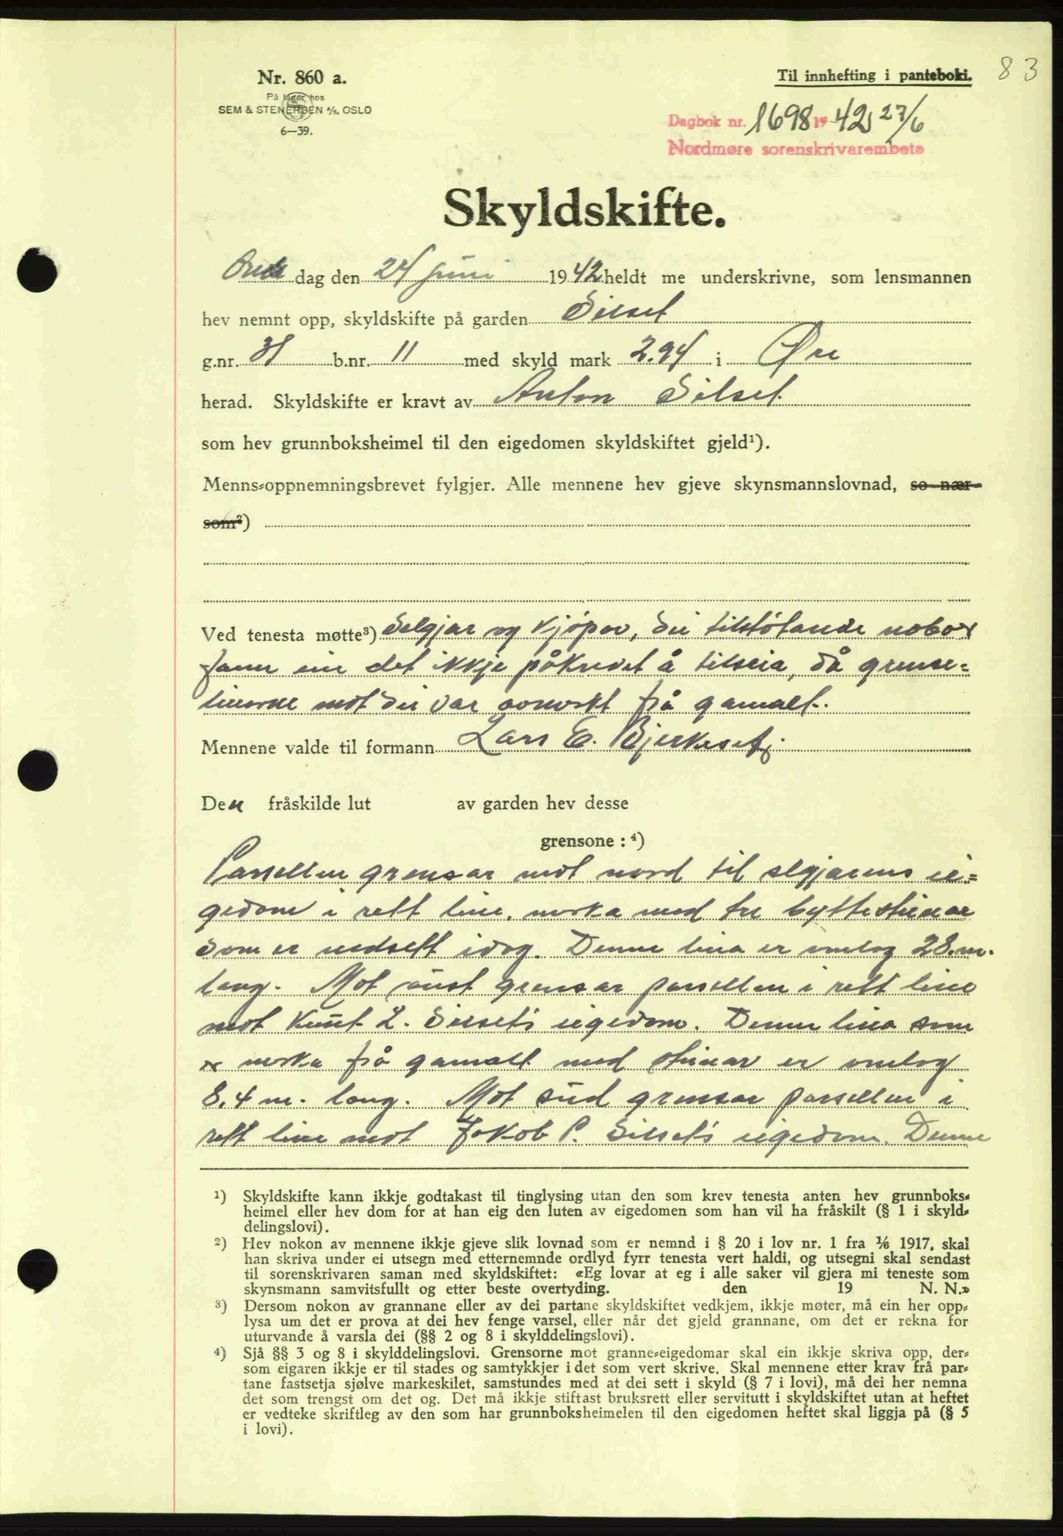 Nr. 860 a.
På lager hos
SEM & STENERSEN A/S, OSLO
6—39.
Til innhefting i panteboki.
83
Dagbok nr. 1698 19 42 27/6
Nordmøre sorenskrivarembete
Skyldskifte.
Ons dag den 24 juni 1942 heldt me underskrivne, som lensmannen
hev nemnt opp, skyldskifte på garden Silset
g.nr. 31 b.nr. 11 med skyld mark 2.94 i Øre
herad. Skyldskifte er kravt av Anton Silset
som hev grunnboksheimel til den eigedomen skyldskiftet gjeld¹).
Menns-oppnemningsbrevet fylgjer. Alle mennene hev gjeve skynsmannslovnad, so nær-
som²)
Ved tenesta møtte³) Selgjar og kjøpar, dei tilstøtande naboar
fann ein det ikkje påkrevet å tilseia, då grense-
linorne mot dei var oomerkt frå gamalt.
Mennene valde til formann Lars E. Bjerkeset
Den fråskilde lut av garden hev desse
grensone : ⁴)
Parsellen grensar mot nord til selgjarens ei-
gedom i rett line, merka med tre byttesteinar
som er nedsett idag. Denne lina er omlag 28.m.
lang. Mot aust grensar parsellen i rett line
mot Knut L. Silset's eigedom. Denne lina som
er merka frå gamalt med steinar er omlag
8.4 m. lang. Mot sud grensar parsellen i
rett line mot Jakob P. Silset's eigedom. Denne
¹) Skyldskifte kann ikkje godtakast til tinglysing utan den som krev tenesta anten hev grunnboks-
heimel eller hev dom for at han eig den luten av eigedomen som han vil ha fråskilt (§ 1 i skyld-
delingslovi).
²) Hev nokon av mennene ikkje gjeve slik lovnad som er nemnd i § 20 i lov nr. 1 fra 1/6 1917, skal
han skriva under ei utsegn med etternemnde ordlyd fyrr tenesta vert haldi, og utsegni skal sendast
til sorenskrivaren saman med skyldskiftet: «Eg lovar at eg i alle saker vil gjera mi teneste som
skynsmann samvitsfullt og etter beste overtyding. den 19 N. N.»
³) Dersom nokon av grannane eller av dei partane skyldskiftet vedkjem, ikkje møter, må ein her opp-
lysa um det er prova at dei hev fenge varsel, eller når det gjeld grannane, om det er rekna for
uturvande å varsla dei (§§ 2 og 8 i skylddelingslovi).
⁴) Sjå §§ 3 og 8 i skylddelingslovi. Grensorne mot granne-eigedomar skal ein ikkje skriva opp, der-
som eigaren ikkje er til stades og samtykkjer i det som vert skrive. Skal mennene etter krav frå par-
tane fastsetja sjølve markeskilet, samstundes med at dei sett i skyld (§ 7 i lovi), må dei her nemna
det som trengst om det og. Det må ikkje stiftast bruksrett eller servitutt i skyldskiftet utan at heftet
er vedteke skriftleg av den som har grunnboksheimelen til den eigedomen heftet skal liggja på (§ 5
i lovi).